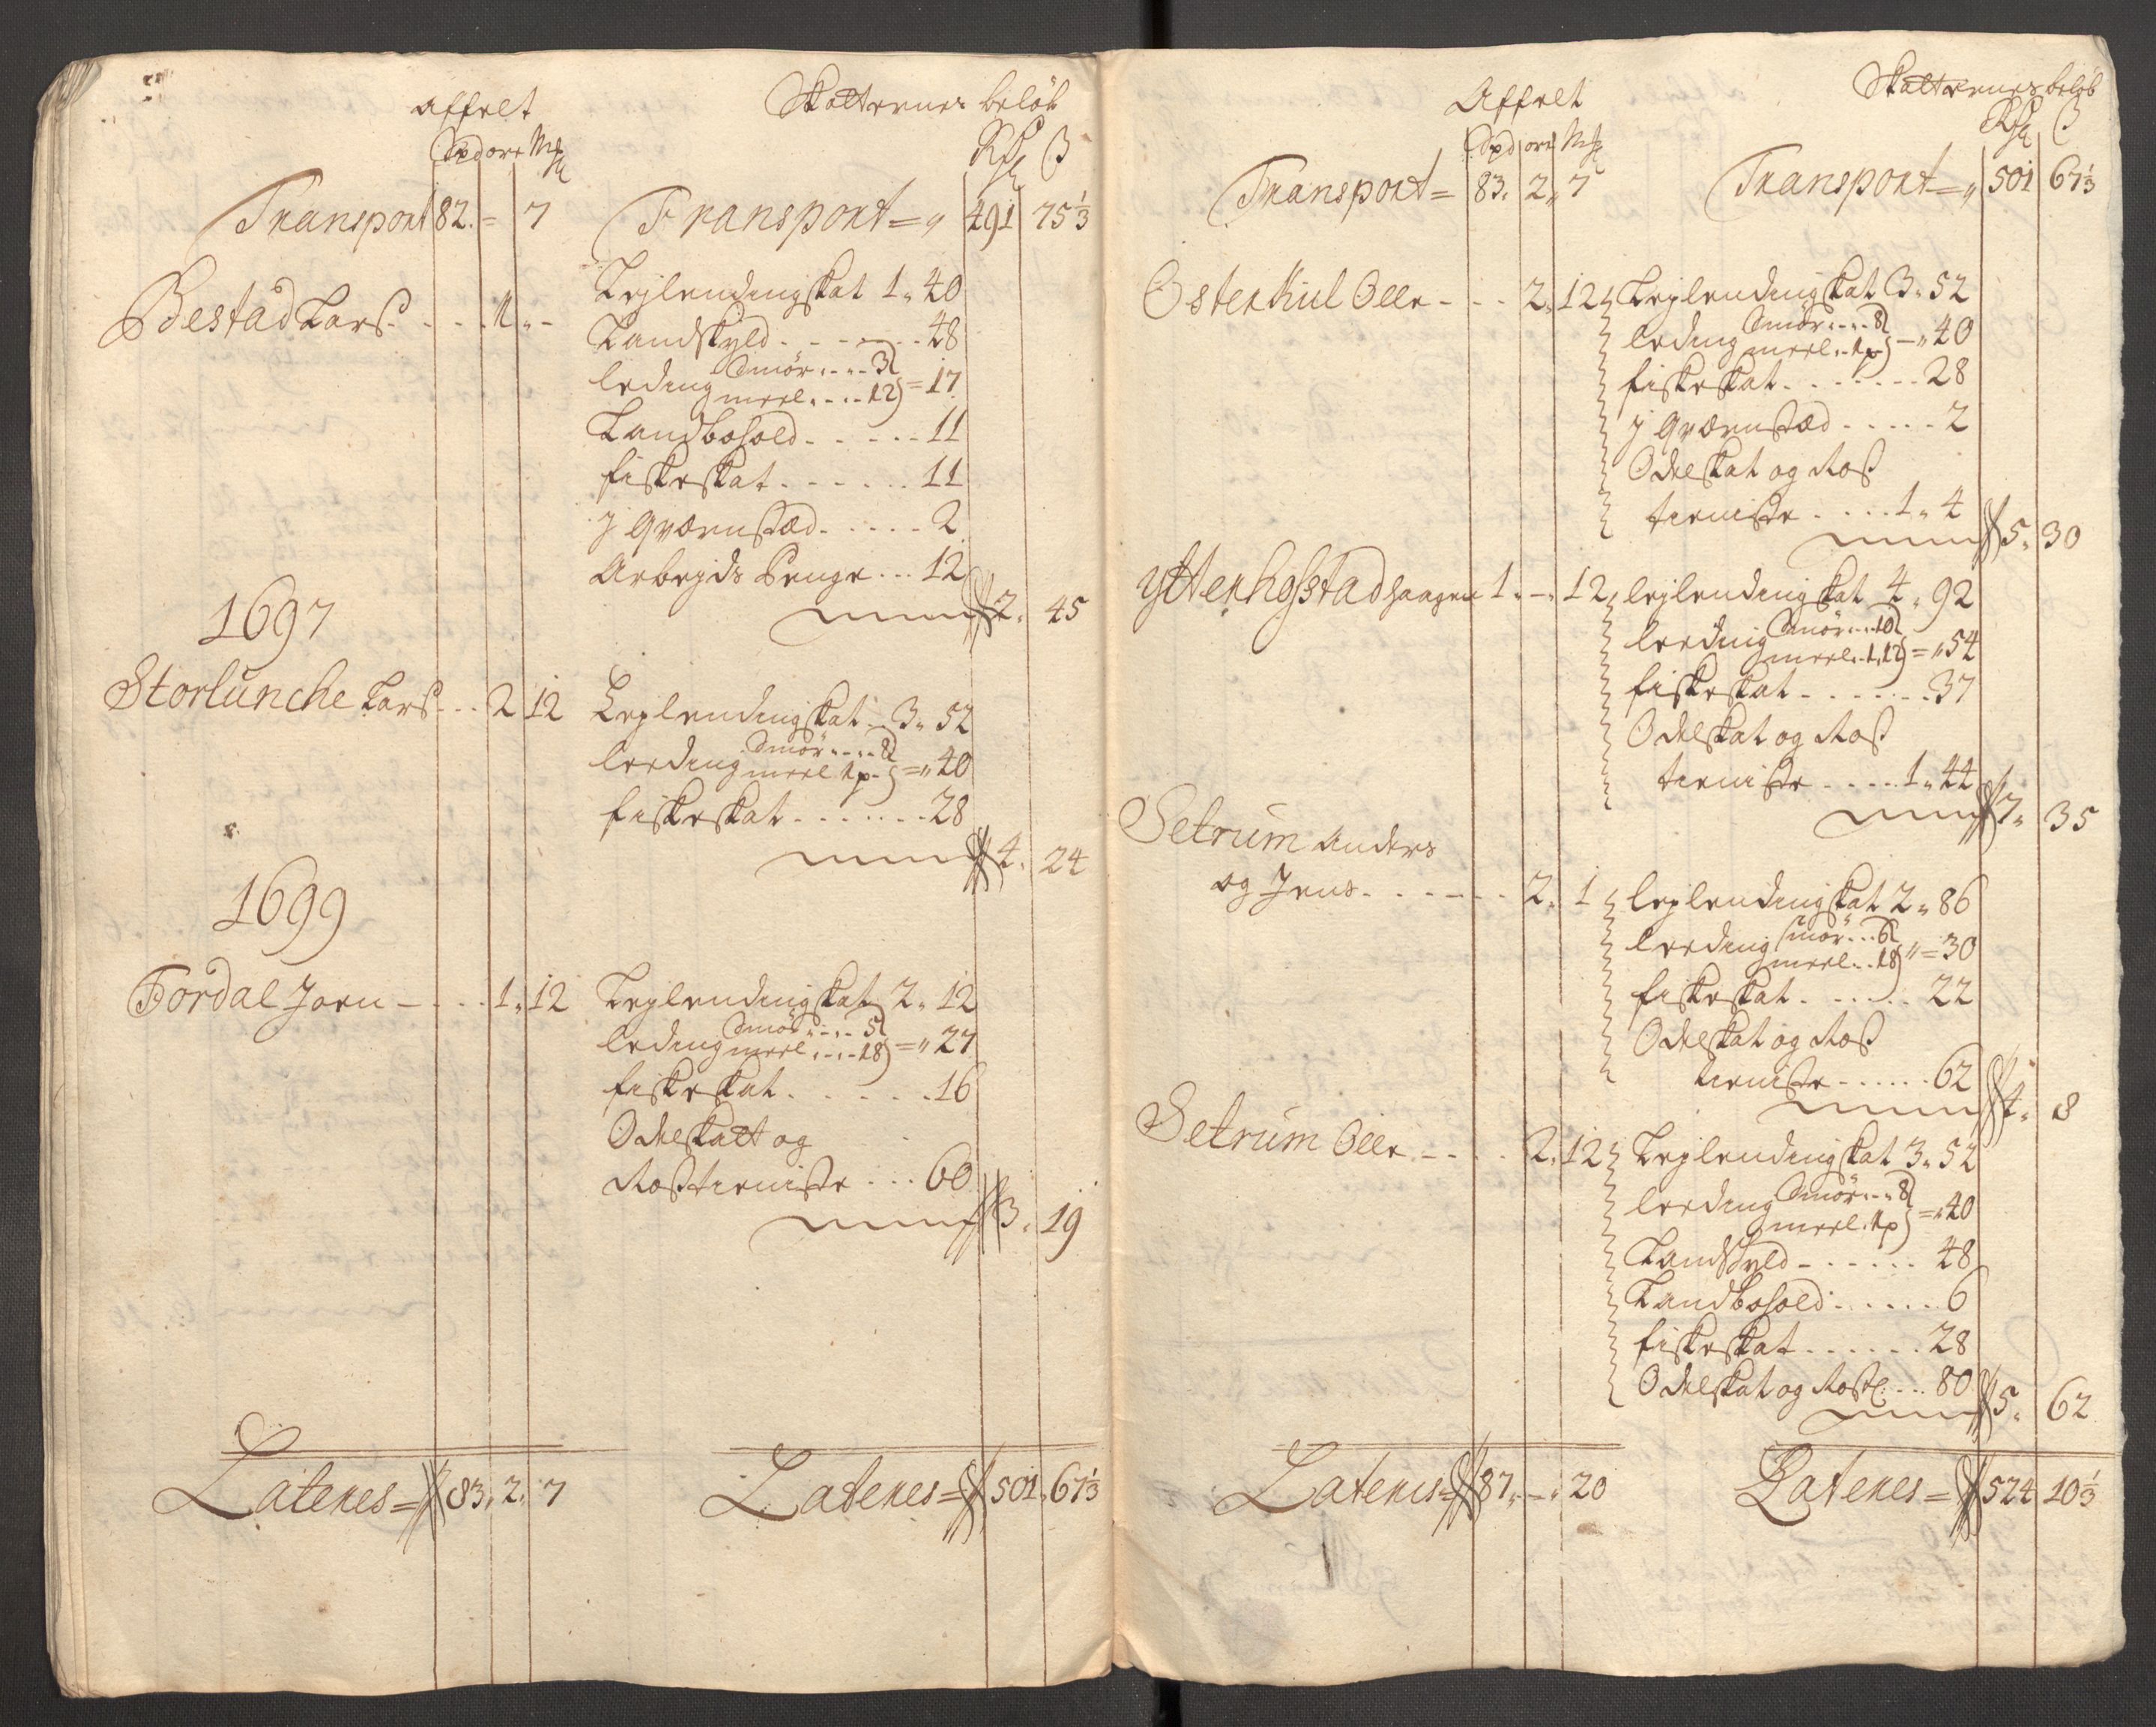 Affelt
Skatternes beløb
Spd ore Mk
Rdr ß
Transport 82. = 7 Transport = „ 491 75⅓
Bestad Lars - - - 1 „ - Leylendingskat 1 „ 40
Landskyld - - - - - 48
leding Smør - - - 3
meel - - - 12 = 17
Landbohold - - - - - 11
fiskeskat - - - - - - 11
J Qværnstæd - - - - - 2
Arbejds Penge - - - 12
2. 45
1697
Storlunche Lars - - - 2 12 Leylendingskat - 3 „ 52
leeding Smør - - - 8
meel 1 p - = „ 40
fiskeskat - - - - - - - 28
4. 24
1699
Fordal Joen - - - - 1 „ 12 Leylendingskat 2 „ 12
leding Smør - - - 5
meel - - - 18 = „ 27
fiskeskat - - - - - - 16
Odelskatt og
Rostieniste - - - 60
3. 19
Lateres = 83. 2. 7 Lateres = 501. 67⅓
Affelt
Skatternes beløb
Spd ore Mk
Rdr ß
Transport = 83. 2 „ 7 Transport = „ 501 67⅓
Osterkiil Olle - - - 2. 12 Leylendingskat 3 „ 52
leding Smør - - - 8
meel - 1 p - „ 40
fiskeskat - - - - - - - 28
J Qværnstæd - - - - - 2
Odelskat og Ros
tieniste - - - - 1 „ 4
5. 30
Ytterhofstad haagen 1. - 12 leylendingskat 4 „ 92
leeding Smør - - - 10
meel - 1 „ 12 = „ 54
fiskeskat - - - - - - - 37
Odelskat og Ros
tieniste - - - - - 1 „ 44
7. 35
Setrum Anders
og Jens - - - - - - 2. 1 leylendingskat 2 „ 86
leeding smør - - - 6
meel - - 18 „ = 30
fiskeskat - - - - - - 22
Odelskat og Ros
tieniste - - - - - - 62
4. 8
Setrum Olle - - - - 2. 12 Leylendingskat 3 „ 52
leeding Smør - - - 8
meel - 1 p = „ 40
Landskyld - - - - - - 48
Landbohold - - - - - - 6
fiskeskat - - - - - - 28
Odelskat og Rost - - - 80
5. 62
Lateris = 87. - . 20 Lateres = 524 10⅓